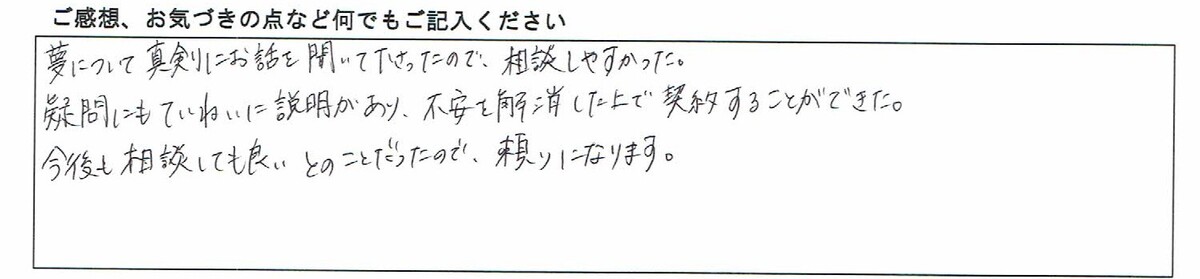 ご感想、お気づきの点など何でもご記入ください
夢について真剣にお話を聞いて下さったので、相談しやすかった。
疑問にもていねいに説明があり、不安を解消した上で契約することができた。
今後も相談しても良いとのことだったので、頼りになります。